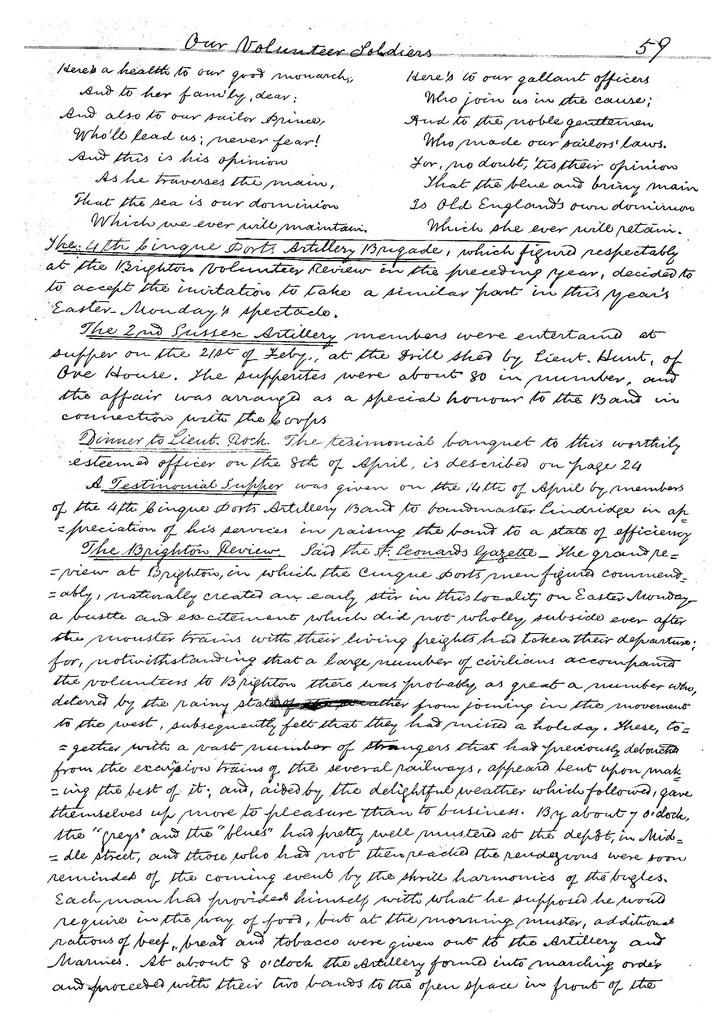 Our Volunteer Soldiers 59
Here's a health to our good monarch,
And to her family, dear;
And also to our sailor Prince,
Who'll lead us; never fear!
And this is his opinion
As he traverses the main,
That the sea is our dominion
Which we ever will maintain.
Here's to our gallant officers
Who join us in the cause;
And to the noble gentlemen
Who made our sailors' laws.
For, no doubt, 'tis their opinion
That the blue and briny main
Is Old England's own dominion
Which she ever will retain.
The 4th Cinque Ports Artillery Brigade, which figured respectably
at the Brighton Volunteer Review in the preceding year, decided to
to accept the invitation to take a similar part in this year's
Easter-Monday's spectacle.
The 2nd Sussex Artillery members were entertained at
supper on the 21st of Feby., at the Drill shed by Lieut. Hunt, of
Ore House. The supperites were about 80 in number, and
the affair was arranged as a special honour to the Band in
connection with the Corps
Dinner to Lieut. Rock. The testimonial banquet to this worthily
esteemed officer on the 8th of April, is described on page 24
A Testimonial Supper was given on the 14th of April by members
of the 4th Cinque Ports Artillery Band to bandmaster Lindridge in ap=
=preciation of his services in raising the band to a state of efficiency
The Brighton Review. Said the St. Leonards Gazette — The grand re=
=view at Brighton, in which the Cinque Ports men figured commend=
=ably, naturally created an early stir in this locality on Easter Monday
a bustle and excitement which did not wholly subside ever after
the monster trains with their living freights had taken their departure;
for, notwithstanding that a large number of civilians accompanied
the volunteers to Brighton there was probably as great a number who,
deterred by the rainy state of the weather from joining in the movement
to the west, subsequently felt that they had missed a holiday. These, to=
=gether with a vast number of strangers that had previously debouched
from the excursion trains of the several railways, appeared bent upon mak=
=ing the best of it; and, aided by the delightful weather which followed, gave
themselves up more to pleasure than to business. By about 7 o'clock,
the "greys" and the "blues" had pretty well mustered at the depôt, in Mid=
=dle street, and those who had not then reached the rendezvous were soon
reminded of the coming event by the shrill harmonics of the bugles.
Each man had provided himself with what he supposed he would
require in the way of food, but at the morning muster, additional
rations of beef, bread and tobacco were given out to the Artillery and
Marines. At about 8 o'clock the Artillery formed into marching order
and proceeded with their two bands to the open space in front of the